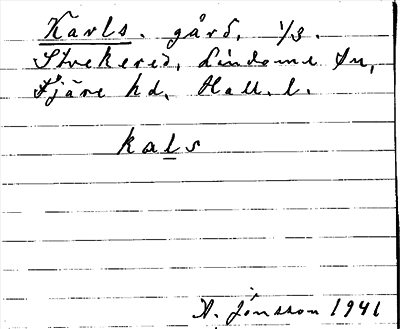 Karls. gård, 1/3.
Strekered, Lindome sn,
Fjäre hd, Hall. l.
kals
A. Jonsson 1941